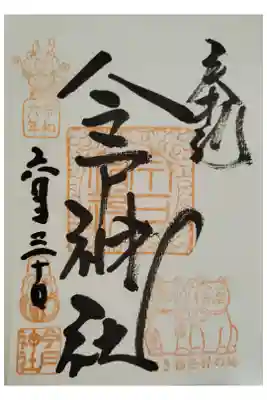 奉拝
今戸神社
六月三十日
今戸
神社